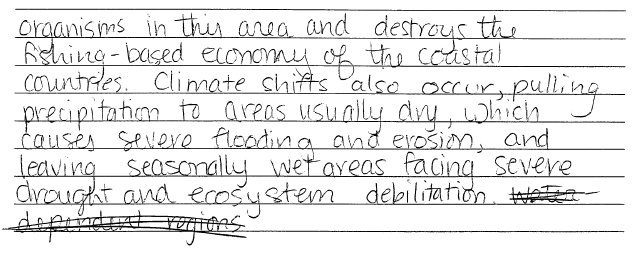 organisms in this area and destroys the
fishing-based economy of the coastal
countries. Climate shifts also occur, pulling
precipitation to areas usually dry, which
causes severe flooding and erosion, and
leaving seasonally wet areas facing severe
drought and ecosystem debilitation. Water
dependent regions